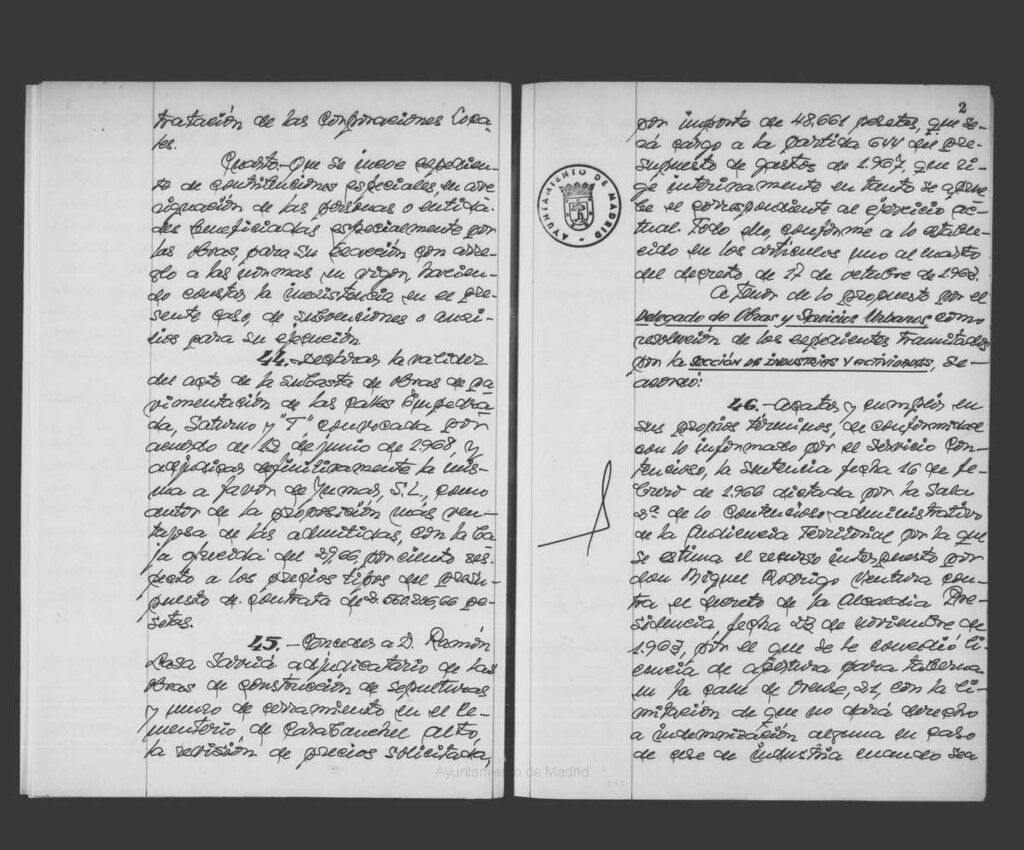 tratación de las Corporaciones Loca-
les.
Cuarto.- Que se incoe expedien-
te de contribuciones especiales, en ave-
riguación de las personas o entida-
des beneficiadas especialmente por
las obras, para su exacción con arre-
glo a las normas en vigor, hacien-
do constar la inexistencia en el pre-
sente caso, de subvenciones o auxi-
lios para su ejecución.
44.- Declarar, la validez
del acto de la subasta de obras de pa-
vimentación de las calles Empedra-
da, Saturno y "T" convocada por
acuerdo de 12 de junio de 1.968, y
adjudicar definitivamente la mis-
ma a favor de Yumas, S.L., como
autor de la proposición más ven-
tajosa de las admitidas, con la ba-
ja ofrecida del 27,66, por ciento res-
pecto a los precios tipos del presu-
puesto de contrata de 2.550.226,66 pe-
setas.
45.- Conceder a D. Ramón
Casa Sarriá adjudicatario de las
obras de construcción de sepulturas
y muro de cerramiento en el Ce-
menterio de Carabanchel Alto,
la revisión de precios solicitada,
2
por importe de 48.661 pesetas, que se-
rá cargo a la partida 644 del pre-
supuesto de gastos de 1.967, que ri-
ge interinamente en tanto se aprue-
be el correspondiente al ejercicio ac-
tual. Todo ello, conforme a lo estable-
cido en los artículos uno al cuarto
del decreto de 17 de octubre de 1.963.
A tenor de lo propuesto por el
Delegado de Obras y Servicios Urbanos como
resolución de los expedientes tramitados
por la SECCIÓN DE INDUSTRIAS Y ACTIVIDADES, se
acordó:
46.- Acatar y cumplir en
sus propios términos, de conformidad
con lo informado por el Servicio Con-
tencioso, la sentencia fecha 16 de fe-
brero de 1.966 dictada por la Sala
2ª de lo Contencioso-administrativo
de la Audiencia Territorial por la que
se estima el recurso interpuesto por
don Miguel Rodrigo Ventura con-
tra el decreto de la Alcaldía Pre-
sidencia, fecha 23 de noviembre de
1.963, por el que se le concedió li-
cencia de apertura para taberna
en la calle de Orense, 21, con la li-
mitación de que no dará derecho
a indemnización alguna en caso
de cese de industria cuando sea
AYUNTAMIENTO DE MADRID
Ayuntamiento de Madrid